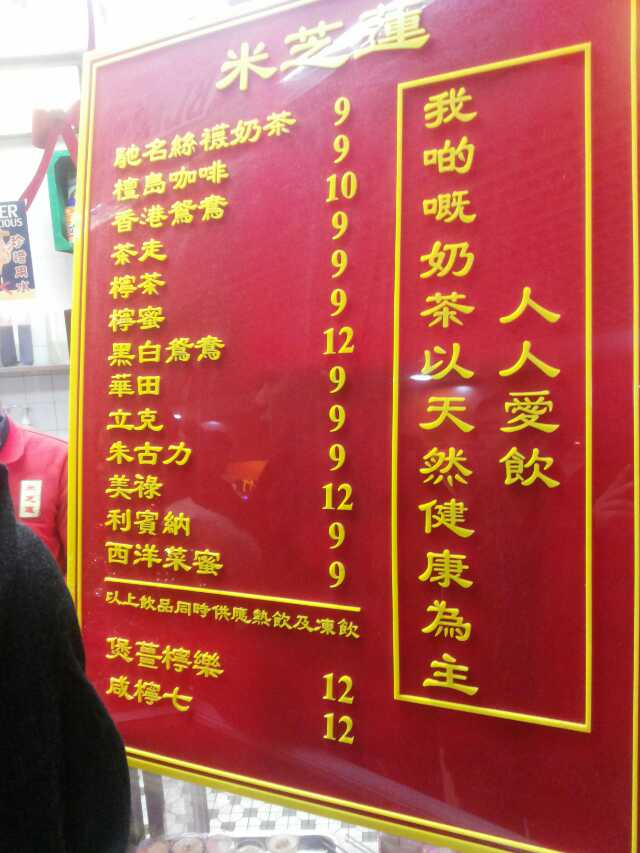 米芝蓮
馳名絲襪奶茶 9
檀島咖啡 9
香港鴛鴦 10
茶走 9
檸茶 9
檸蜜 9
黑白鴛鴦 12
華田 9
立克 9
朱古力 9
美祿 12
利賓納 9
西洋菜蜜 9
以上飲品同時供應熱飲及凍飲
煲薑檸樂 12
咸檸七 12
我啲嘅奶茶以天然健康為主
人人愛飲
米芝蓮